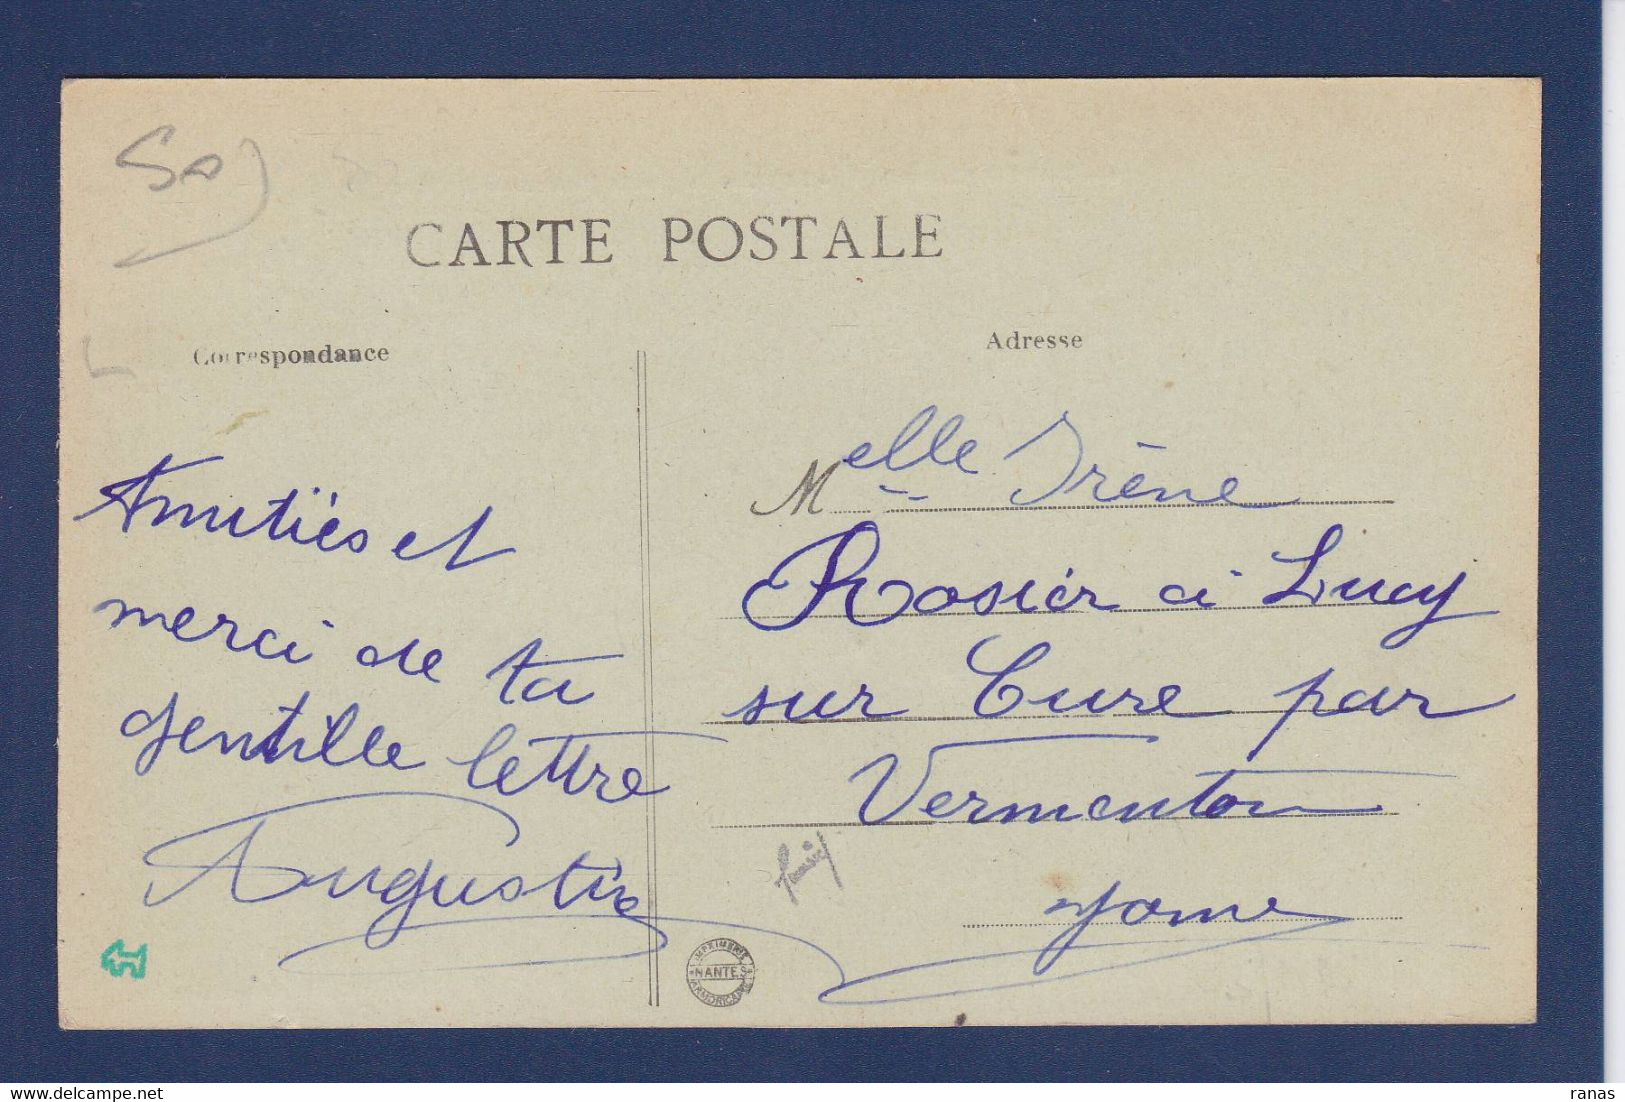 CARTE POSTALE
Correspondance
Adresse
Amitiés et
merci de ta
gentille lettre
Augustin
Melle Irène
Rosier à Lucy
sur Cure par
Vermenton
Yonne
IMPRIMERIE
NANTES
ARMORICAINE
ranas